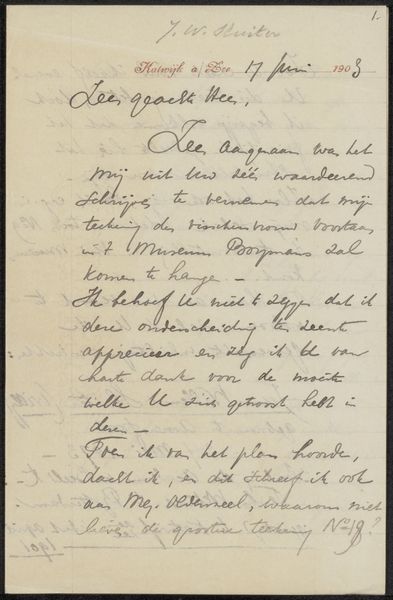 1.
Katwijk a/Zee, 17 Juni 1903
Zeer geachte Heer,
Zeer aangenaam was het
mij uit Uw zéér waardeerend
schrijven te vernemen dat mijn
teekening der visschersvrouw voortaan
in 't Museum Boymans zal
komen te hangen –
Ik behoef U niet te zeggen dat ik
deze onderscheiding ten zeerste
apprecieer en zeg ik U van
harte dank voor de moeite
welke U zich getroost hebt in
dezen –
Toen ik van het plan hoorde,
dacht ik, en dit schreef ik ook
aan Mej. Oldenzeel, waarom niet
liever de grootere teekening No 19?